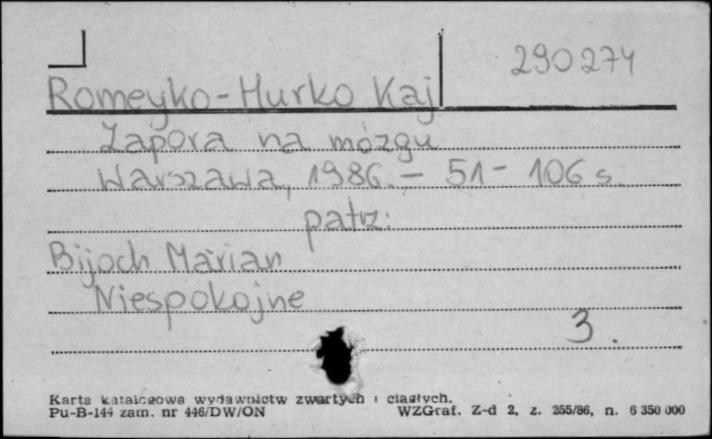 290274
Romeyko-Hurko Kaj
Zapora na mózgu
Warszawa, 1986. - 51 - 106 s.
patrz:
Bijoch Marian
Niespokojne
3.
Karta katalogowa wydawnictw zwartych i ciągłych.
Pu-B-144 zam. nr 446/DW/ON WZGraf. Z-d 2, z. 255/86, n. 6 350 000